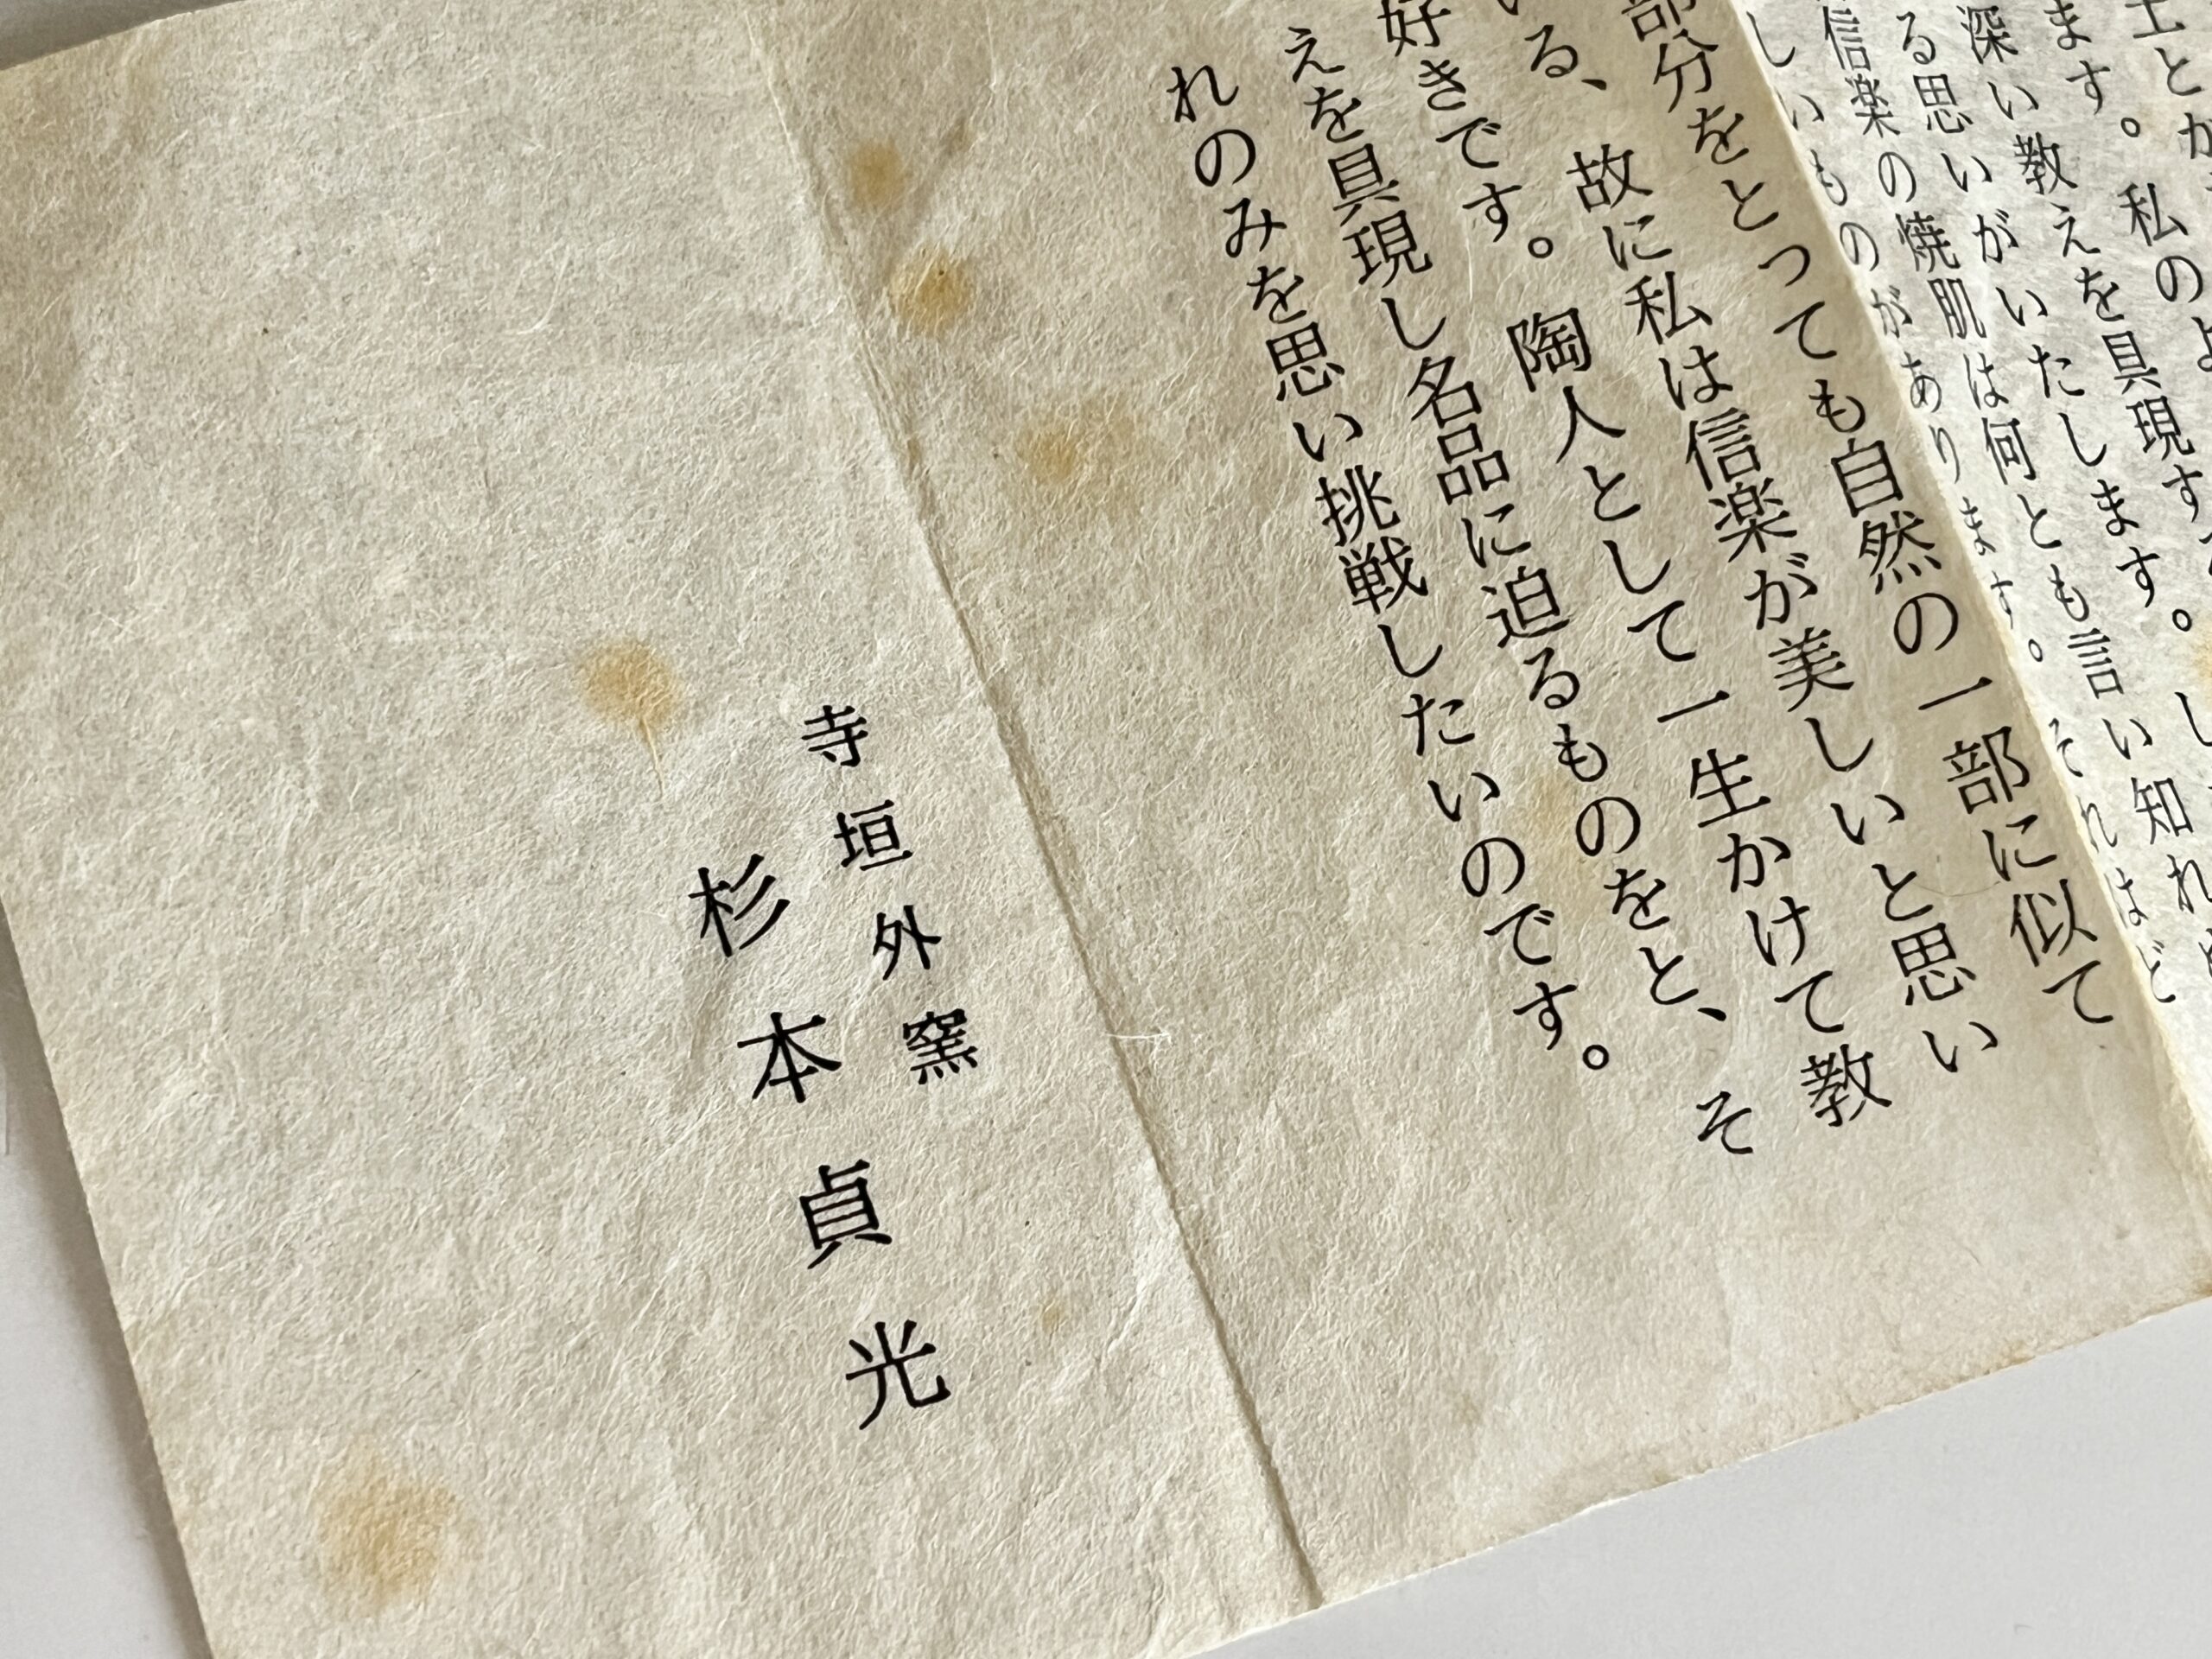 士とが
ます。私のよ
深い教えを具現す
る思いがいたします。し
信楽の焼肌は何とも言い知れ
しいものがあります。それはど
部分をとっても自然の一部に似て
いる、故に私は信楽が美しいと思い
好きです。陶人として一生かけて教
えを具現し名品に迫るものをと、そ
れのみを思い挑戦したいのです。
寺垣外窯
杉本貞光